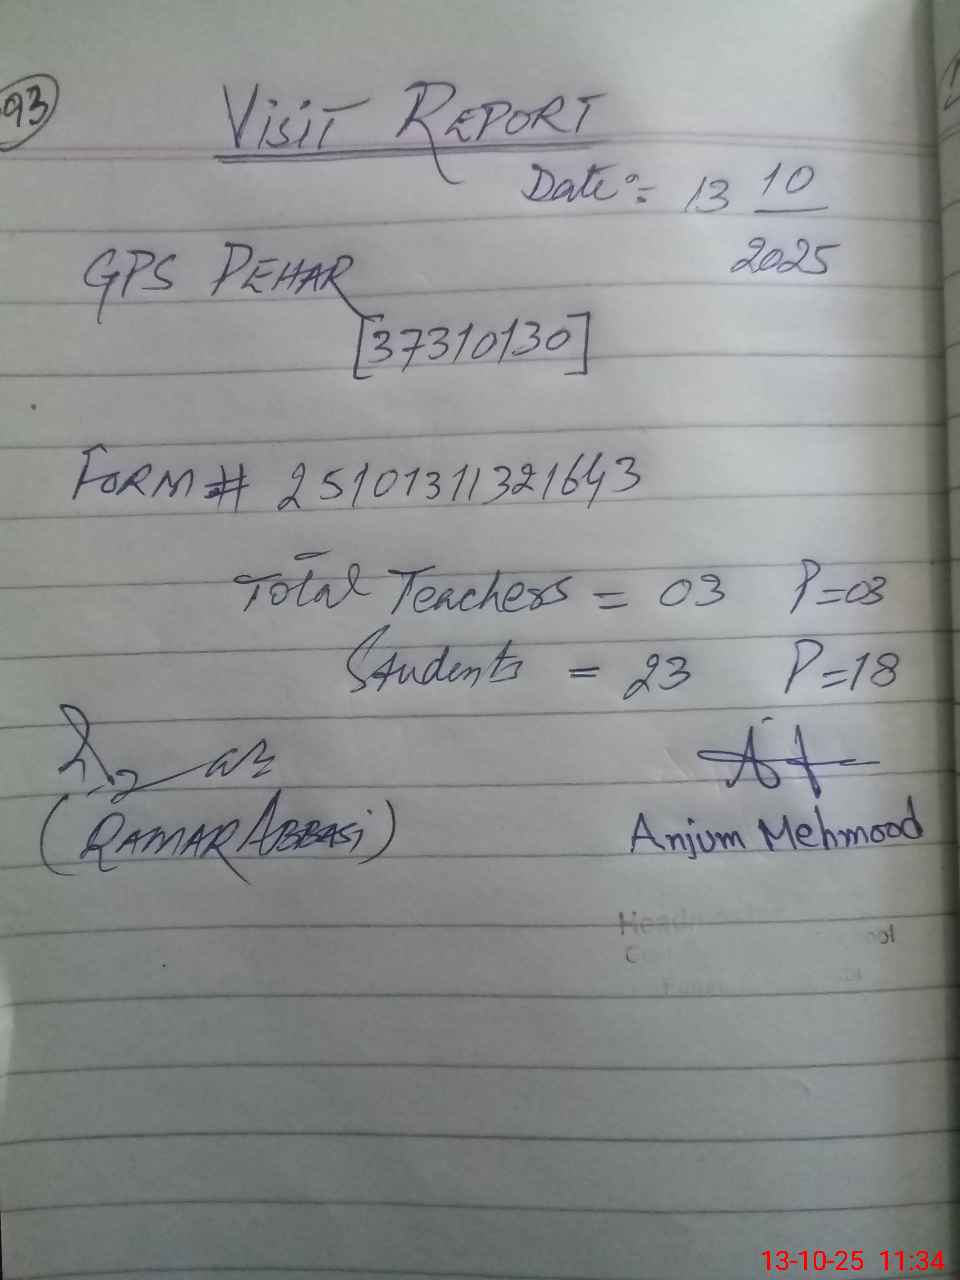 93
VISIT REPORT
Date:= 13 10/2025
GPS PEHAR
[37310130]
FORM # 25101311321643
Total Teachers = 03 P=03
Students = 23 P=18
(QAMAR ABBASI)
Anjum Mehmood
13-10-25 11:34